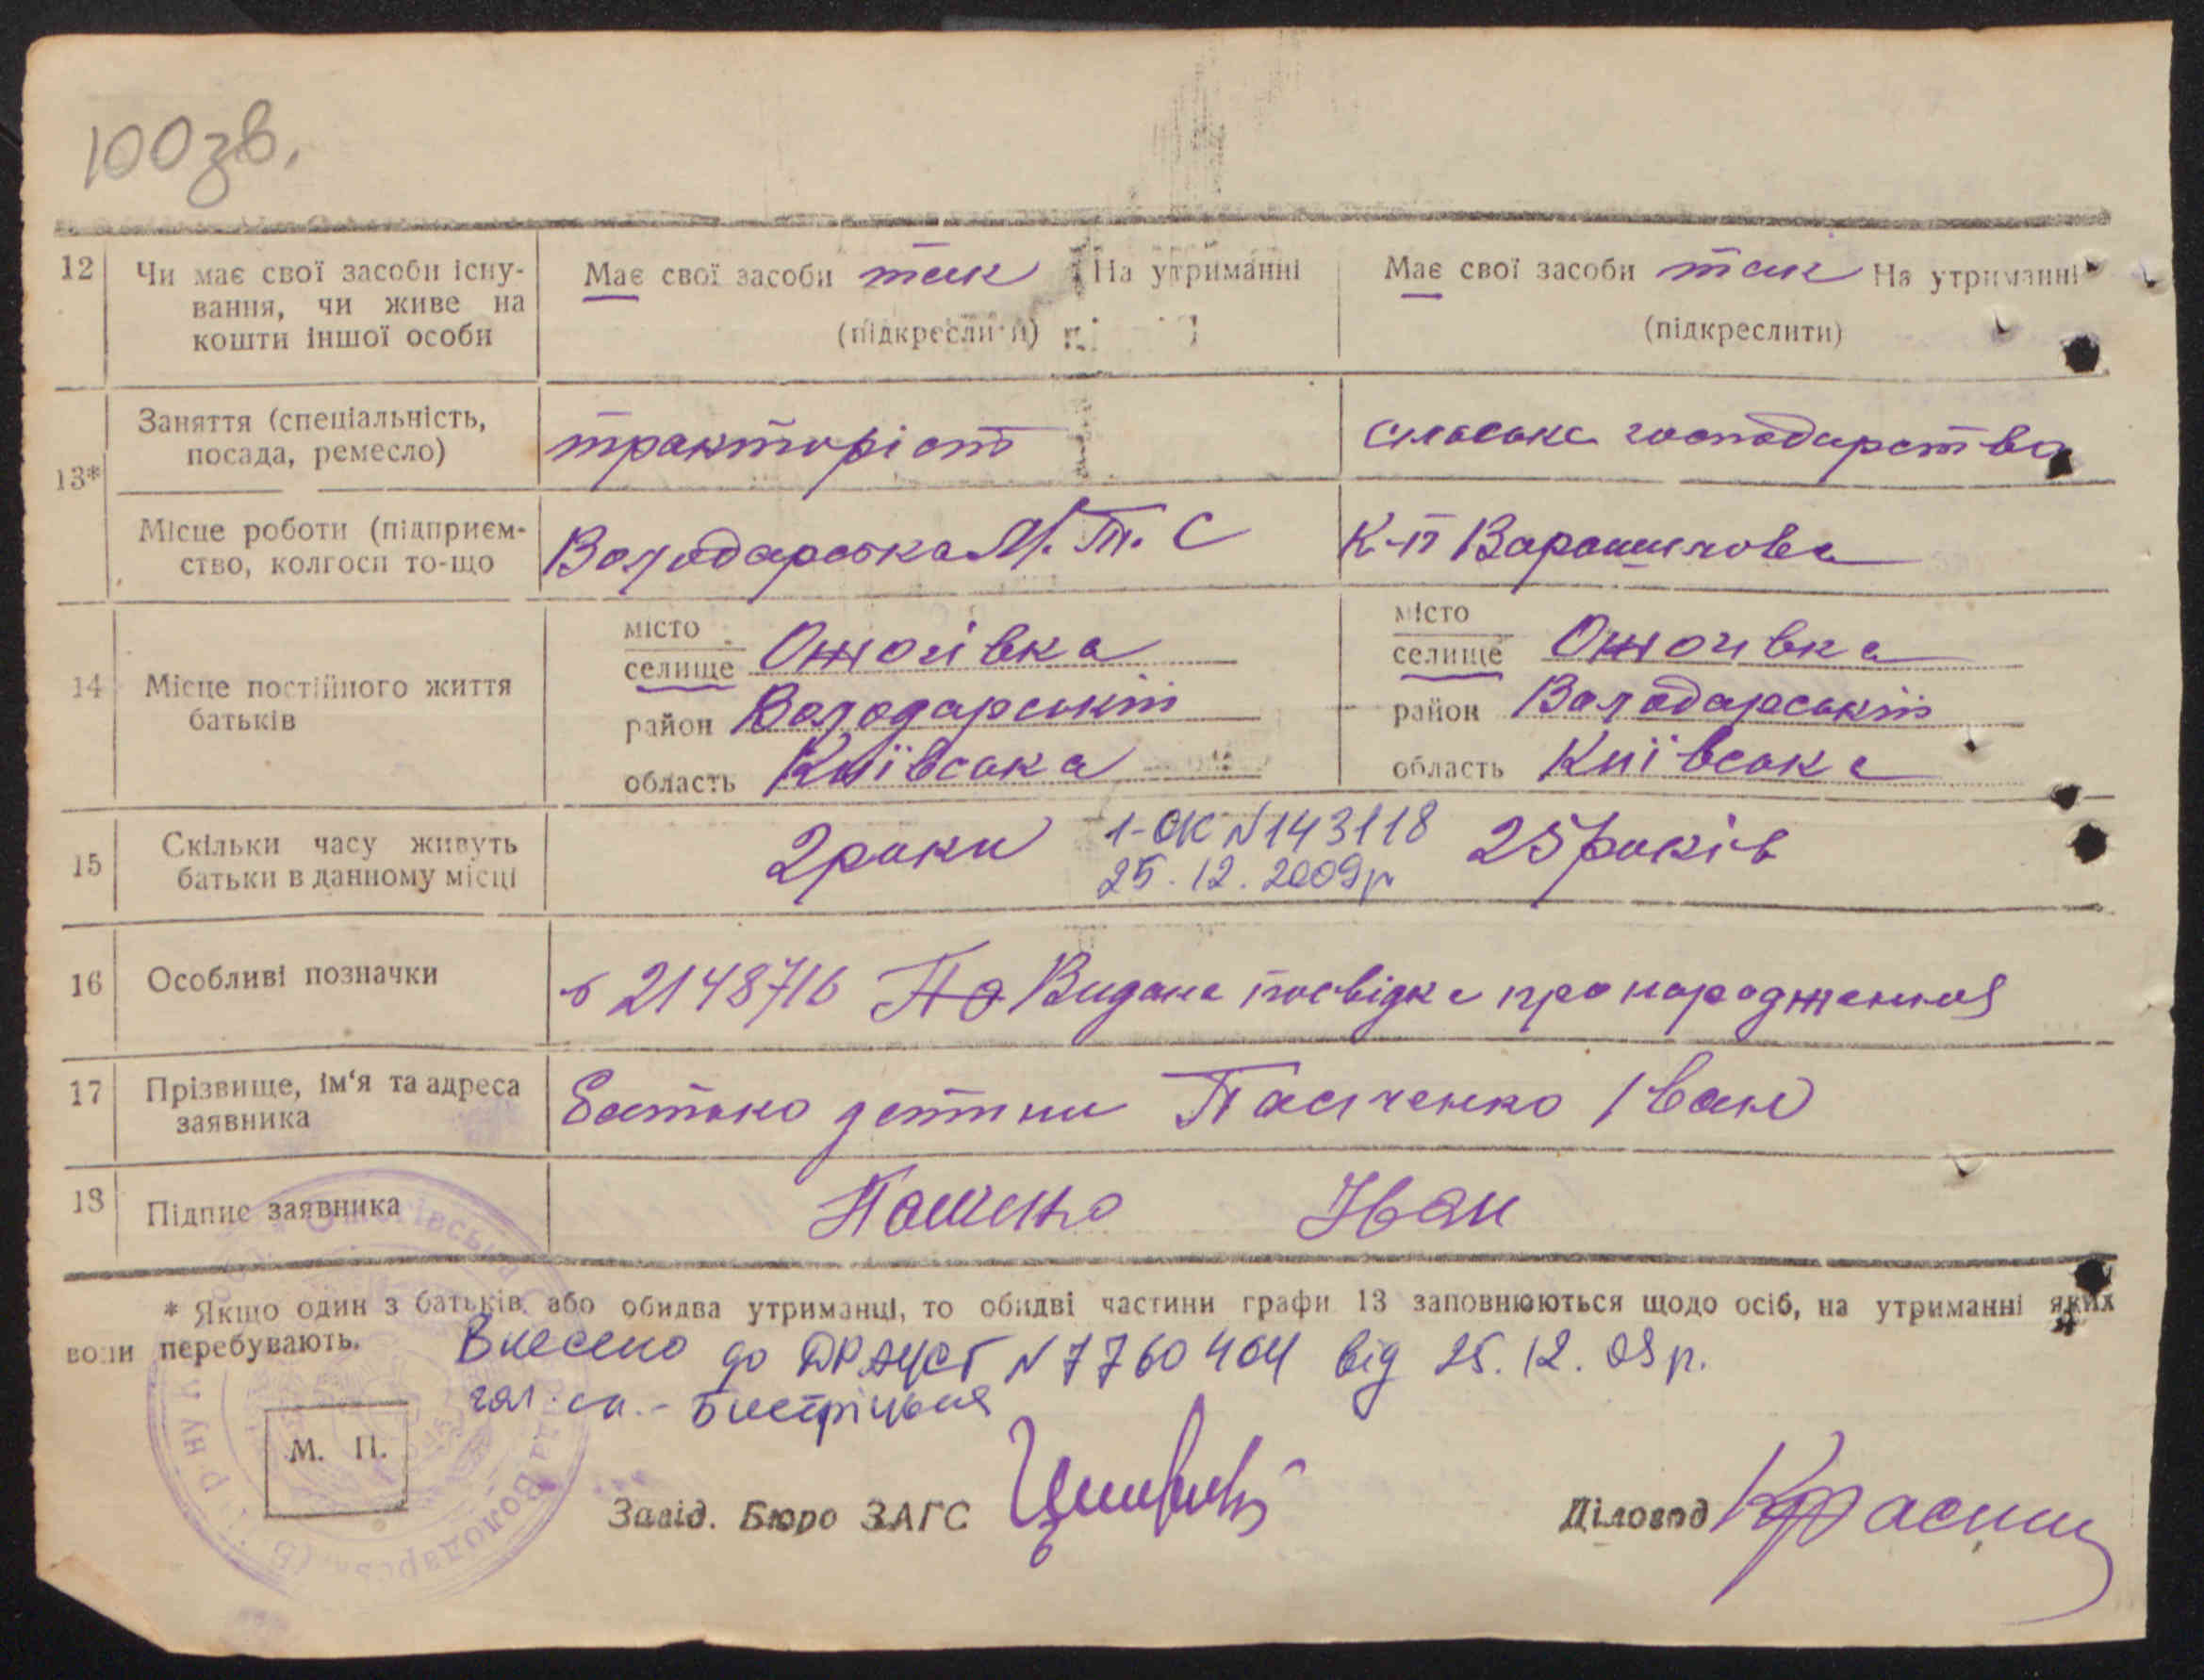 100зв.
12 Чи має свої засоби існу- Має свої засоби так На утриманні Має свої засоби так На утриманні
вання, чи живе на
кошти іншої особи (підкреслити) (підкреслити)
13* Заняття (спеціальність,
посада, ремесло) тракторіст сільське господарство
Місце роботи (підприєм-
ство, колгосп то-що Володарська М.Т.С К-п Ворошилова
14 Місце постійного життя
батьків
місто
селище Ожогівка
район Володарський
область Київська
місто
селище Ожогівка
район Володарський
область Київська
15 Скільки часу живуть
батьки в данному місці 2 роки 1-ОК N143118 25 років
25.12.2009р
16 Особливі позначки 2148716 Видана посвідка про народження
17 Прізвище, ім‘я та адреса
заявника Батько дитини Іван
18 Підпис заявника Іван
* Якщо один з батьків, або обидва утриманці, то обидві частини графи 13 заповнюються щодо осіб, на утриманні яких
вони перебувають.
Внесено до ДРАЦСГ N7760404 від 25.12.09р.
гол. сп. -
М. П.
Завід. Бюро ЗАГС
Діловод